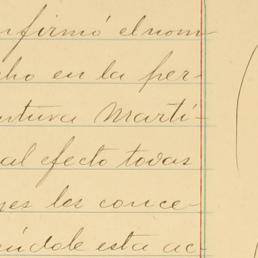 nfirmó el nom
cho en la per-
ntura Martí-
al efecto todas
nes les conce-
éndole esta ac-